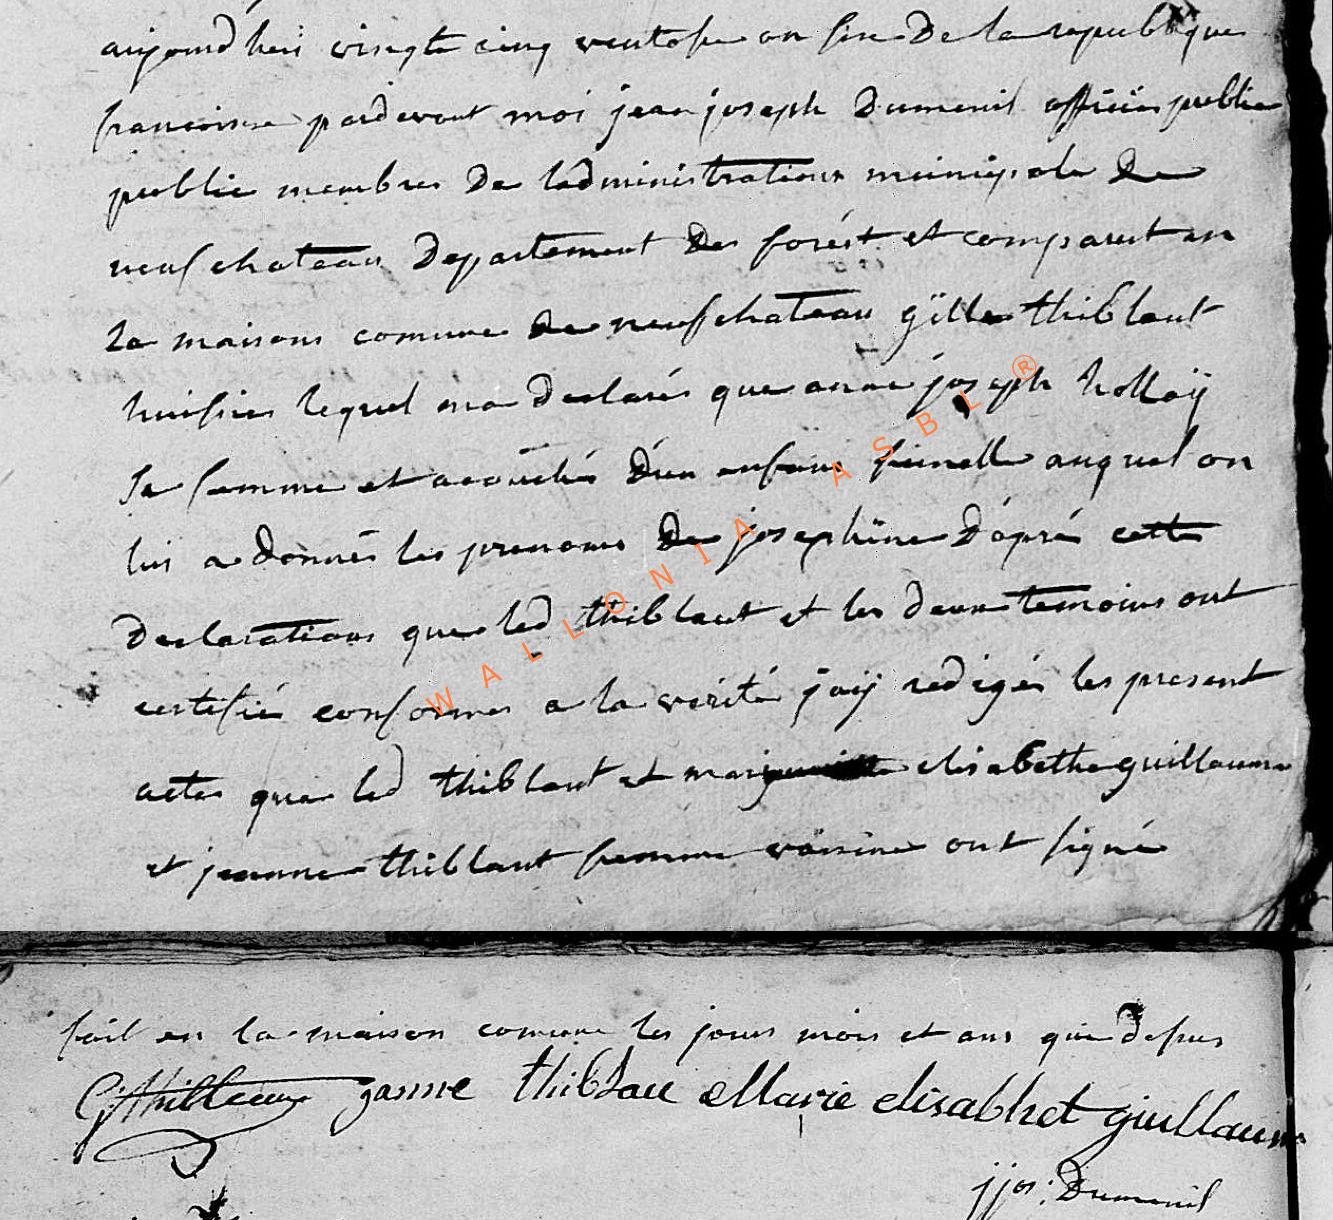 aujourd'heüi vingte cinq ventose an sixe De la republique
francoisse pardevant moi jean joseph Dumenil officier public
public membres De ladministration munisipale De
neufchateau Departement Des forést et comparut en
la maisons comune De neufchateau gille thiblaut
huissier lequel ma Declarés que anne joseph hollaÿ
sa femme et acouchés D'un enfans fumelle auquel on
lui a donnés les prenoms De josephine D'aprés cette
Declarations que led thiblaut et les deux temoins ont
certifié conformes a la verité jaÿ redigés les present
actes que led thiblaut et elisabethe guillaume
et jeanne thiblaut femme voisine ont signé
fait en la maison comune les jours mois et ans que Depus
G thiblaux janne thiblau Marie elisabhet guillaume
jjos: Dumenil
WALLONIA ASBL ®